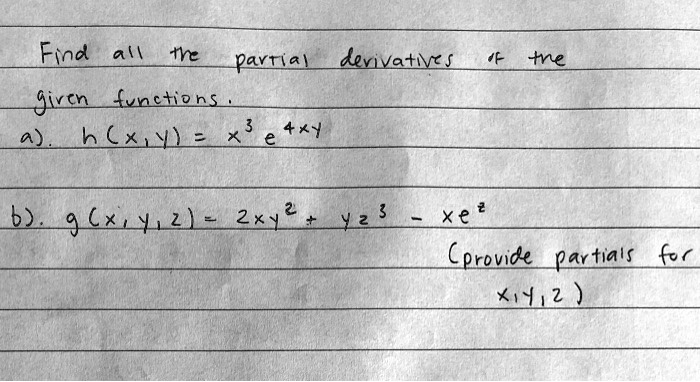 Find all the partial derivatives of the
given functions.
a). h(x,y) = x³ e⁴ˣʸ
b). g(x,y,z) = 2xy² + yz³ - xeᶻ
(provide partials for
x,y,z)